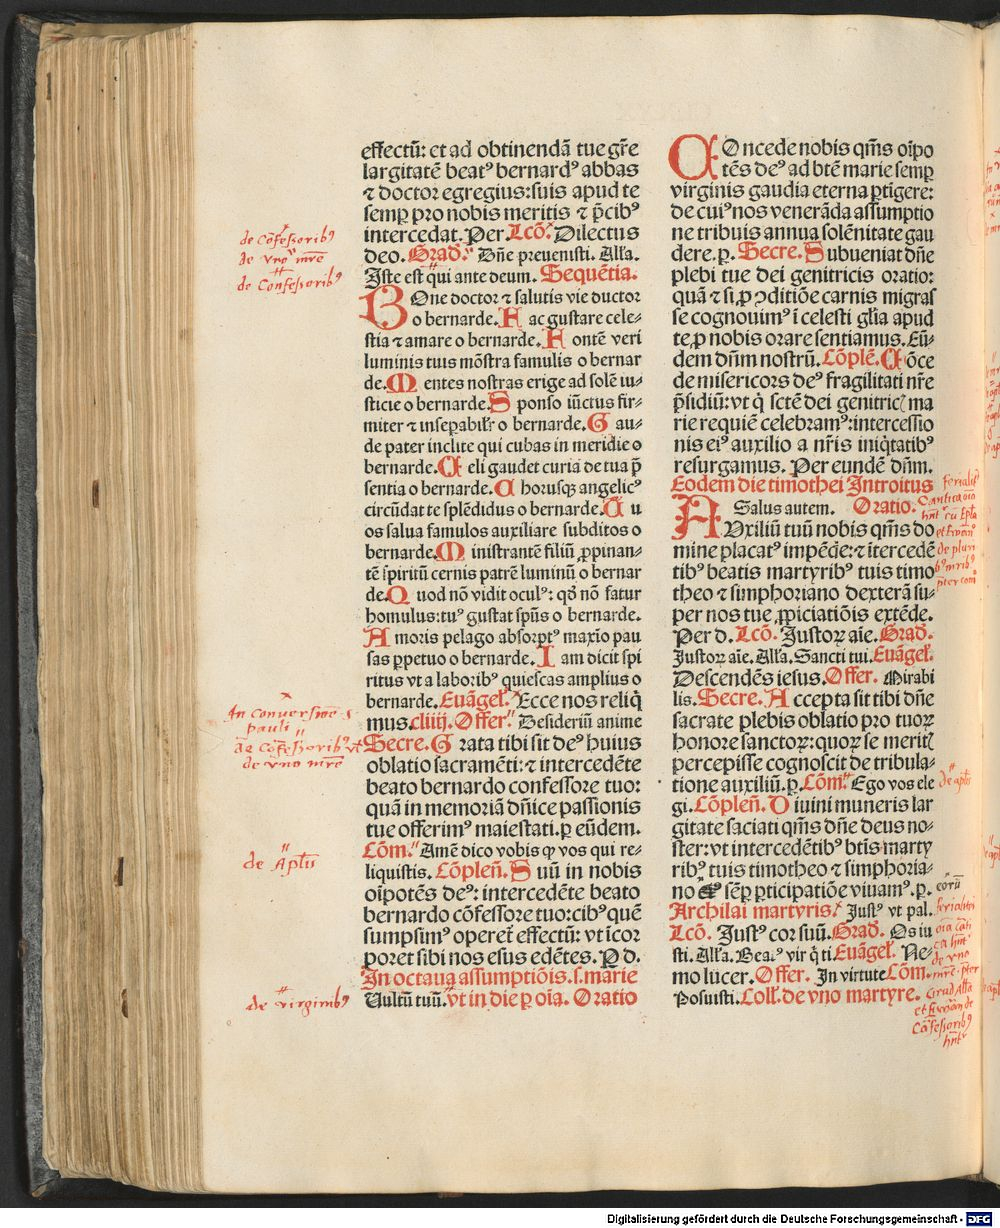 effectū: et ad obtinendā tue gr̄e
largitatē beatꝰ bernardꝰ abbas
⁊ doctor egregius: suis apud te
semꝑ pro nobis meritis ⁊ p̄cibꝰ
intercedat. Per. Lcō. Dilectus
deo. Grad. Dn̄e preuenisti. Alľa.
Iste est qui ante deum. Sequētia.
BOne doctor ⁊ salutis vie ductor
o bernarde. Hac gustare cele⸗
stia ⁊ amare o bernarde. Fontē veri
luminis tuis mōstra famulis o bernar
de. Mentes nostras erige ad solē iu⸗
sticie o bernarde. Sponso iūctus fir⸗
miter ⁊ inseꝑabilr̄ o bernarde. Gau⸗
de pater inclite qui cubas in meridie o
bernarde. Celi gaudet curia de tua p̄
sentia o bernarde. Chorusqꝫ angelicꝰ
circūdat te splēdidus o bernarde. Tu
os salua famulos auxiliare subditos o
bernarde. Ministrantē filiū ꝓpinan⸗
tē spiritū cernis patrē luminū o bernar
de. Quod nō vidit oculꝰ: qd̄ nō fatur
homulus: tuꝰ gustat spūs o bernarde.
Amoris pelago absorptꝰ maxīo pau
sas ꝑpetuo o bernarde. Iam dicit spi
ritus vt a laboribꝰ quiescas amplius o
bernarde. Euāgeł. Ecce nos reliq̄
mus. cliiij. Offer. Desideriū anime
Secre. Grata tibi sit deꝰ huius
oblatio sacramēti: ⁊ intercedēte
beato bernardo confessore tuo:
quā in memoriā dn̄ice passionis
tue offerimꝰ maiestati. ꝑ eūdem.
Cōm. Amē dico vobis qꝫ vos qui re⸗
liquistis. Cōpleñ. Suū in nobis
oīpotēs deꝰ: intercedēte beato
bernardo cōfessore tuo: cibꝰ quē
sumpsimꝰ operet̄ effectū: vt īcor
poret sibi nos esus edētes. P d.
In octaua assumptiōis. s. marie
Uultū tuū. vt in die ꝑ oīa. Oratio
COncede nobis qm̄s oīpo
tēs deꝰ ad btē marie semꝑ
virginis gaudia eterna ꝑtigere:
de cuiꝰ nos venerāda assumptio
ne tribuis annua solēnitate gau
dere. p. Secre. Subueniat dn̄e
plebi tue dei genitricis oratio:
quā ⁊ si ꝓ ↄditiōe carnis migras
se cognouimꝰ ī celesti glīa apud
te ꝓ nobis orare sentiamus. Eū⸗
dem dn̄m nostrū. Cōplē. Cōce
de misericors deꝰ fragilitati nr̄e
p̄sidiū: vt q̄ sctē dei genitricꝭ ma
rie requiē celebramꝰ: intercessio
nis eiꝰ auxilio a nr̄is iniq̄tatibꝰ
resurgamus. Per eundē dn̄m.
Eodem die timothei Introitus
Salus autem. Oratio.
AUxiliū tuū nobis qm̄s do
mine placatꝰ impēde: ⁊ ītercedē
tibꝰ beatis martyribꝰ tuis timo
theo ⁊ simphoriano dexterā su⸗
per nos tue ꝓpiciatiōis extēde.
Per d. Lcō. Iustoꝝ aīe. Grad.
Iustoꝝ aīe. Alľa. Sancti tui. Euāgeł.
Descendēs iesus. Offer. Mirabi
lis. Secre. Accepta sit tibi dn̄e
sacrate plebis oblatio pro tuoꝝ
honore sanctoꝝ: quoꝝ se meritꝭ
percepisse cognoscit de tribula⸗
tione auxiliū. p. Cōm. Ego vos ele
gi. Cōpleñ. Diuini muneris lar
gitate saciati qm̄s dn̄e deus no⸗
ster: vt intercedētibꝰ btīs marty
ribꝰ tuis timotheo ⁊ simphoria⸗
no sēꝑ ꝑticipatiōe viuamꝰ. p.
Archilai martyris. Iustꝰ vt pal.
Lcō. Iustꝰ cor suū. Grad. Os iu
sti. Alľa. Beatꝰ vir q̄ ti Euāgeł. Ne⸗
mo lucer. Offer. In virtute Cōm.
Posuisti. Coll. de vno martyre.
de Cōfessoribꝰ
de vno mr̄e
de Confessoribꝰ
In Conuersiōe S
pauli
de Cōfessoribꝰ vt
de vno mr̄e
de Apl̄is
de virginibꝰ
de apl̄is
eorū
de vno
et Ewan de
Cōfessoribꝰ
Digitalisierung gefördert durch die Deutsche Forschungsgemeinschaft - DFG